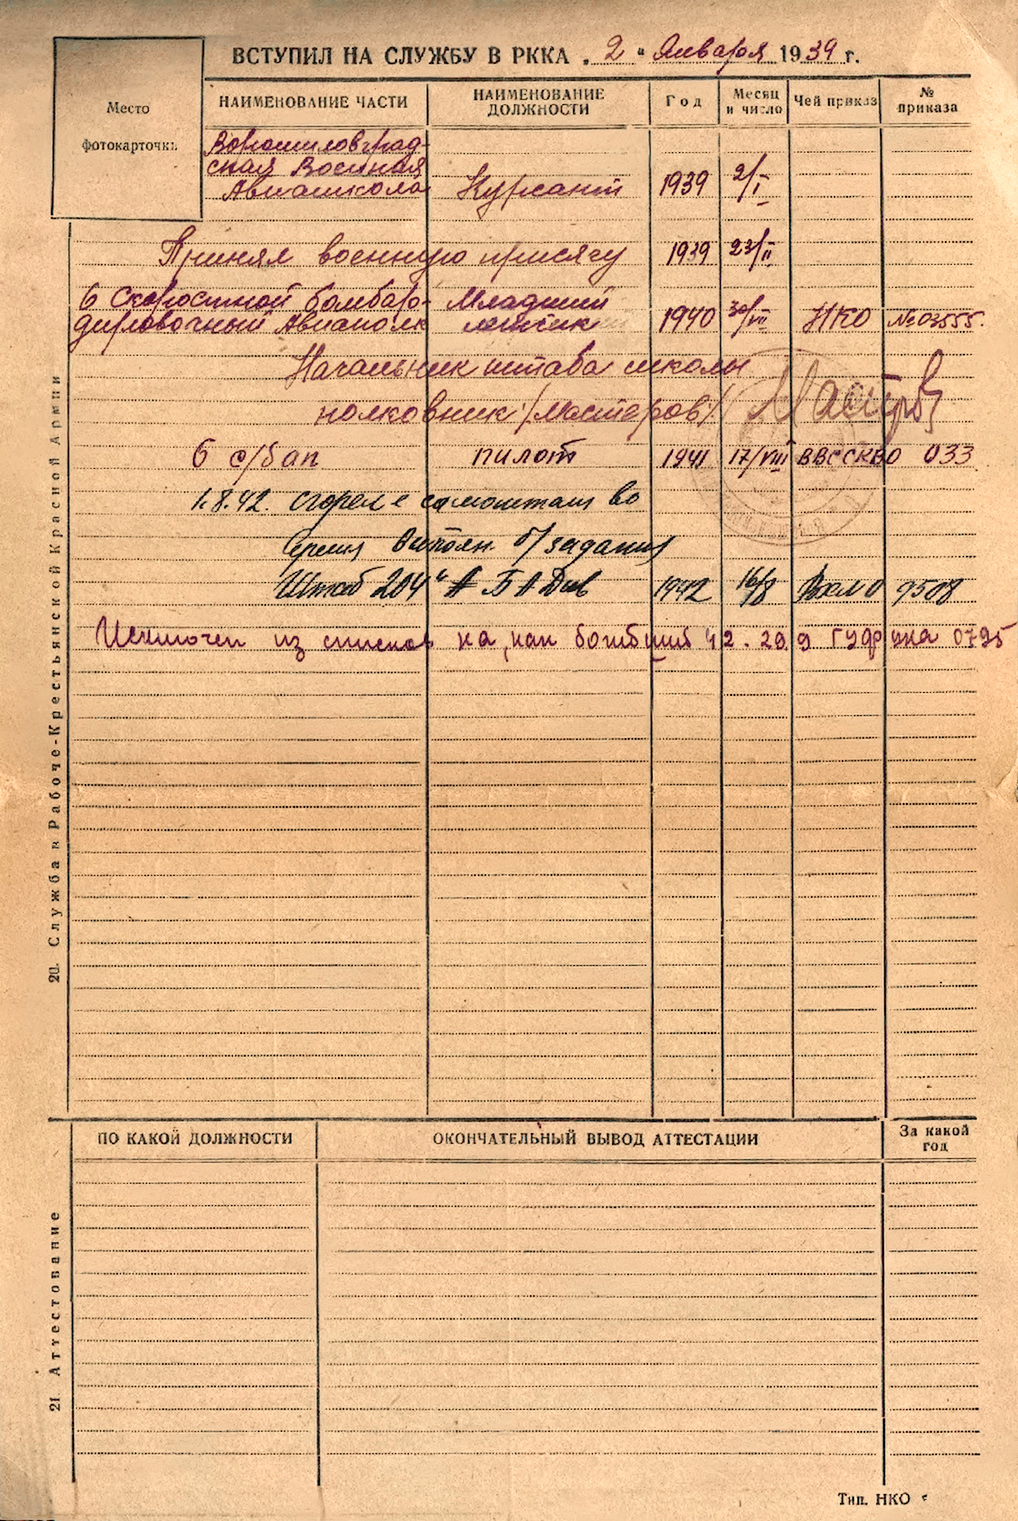 ВСТУПИЛ НА СЛУЖБУ В РККА „ 2 " Января 1939 г.
Место
фотокарточки
НАИМЕНОВАНИЕ ЧАСТИ
НАИМЕНОВАНИЕ
ДОЛЖНОСТИ
Год
Месяц
и число
Чей приказ
№
приказа
Ворошиловград-
ская Военная
Авиашкола Курсант 1939 2/I
Принял военную присягу 1939 23/II
6 Скоростной бомбаро- Младший
дировочный Авиаполк летчик 1940 30/VII НКО №03555.
Начальник штаба школы
полковник /Мастеров/
6 с/бап пилот 1941 17/VIII ВВССКВО 033
1.8.42. сгорел с самолетом во
время выполн. б/задания
Штаб 204й А Б А Див 1942 16/8 9508
Исключен из списков ка, как погибший 42. 29 9 ГУФ 0795
20. Служба в Рабоче-Крестьянской Красной Армии
ПО КАКОЙ ДОЛЖНОСТИ
ОКОНЧАТЕЛЬНЫЙ ВЫВОД АТТЕСТАЦИИ
За какой
год
21 Аттестование
Тип. НКО